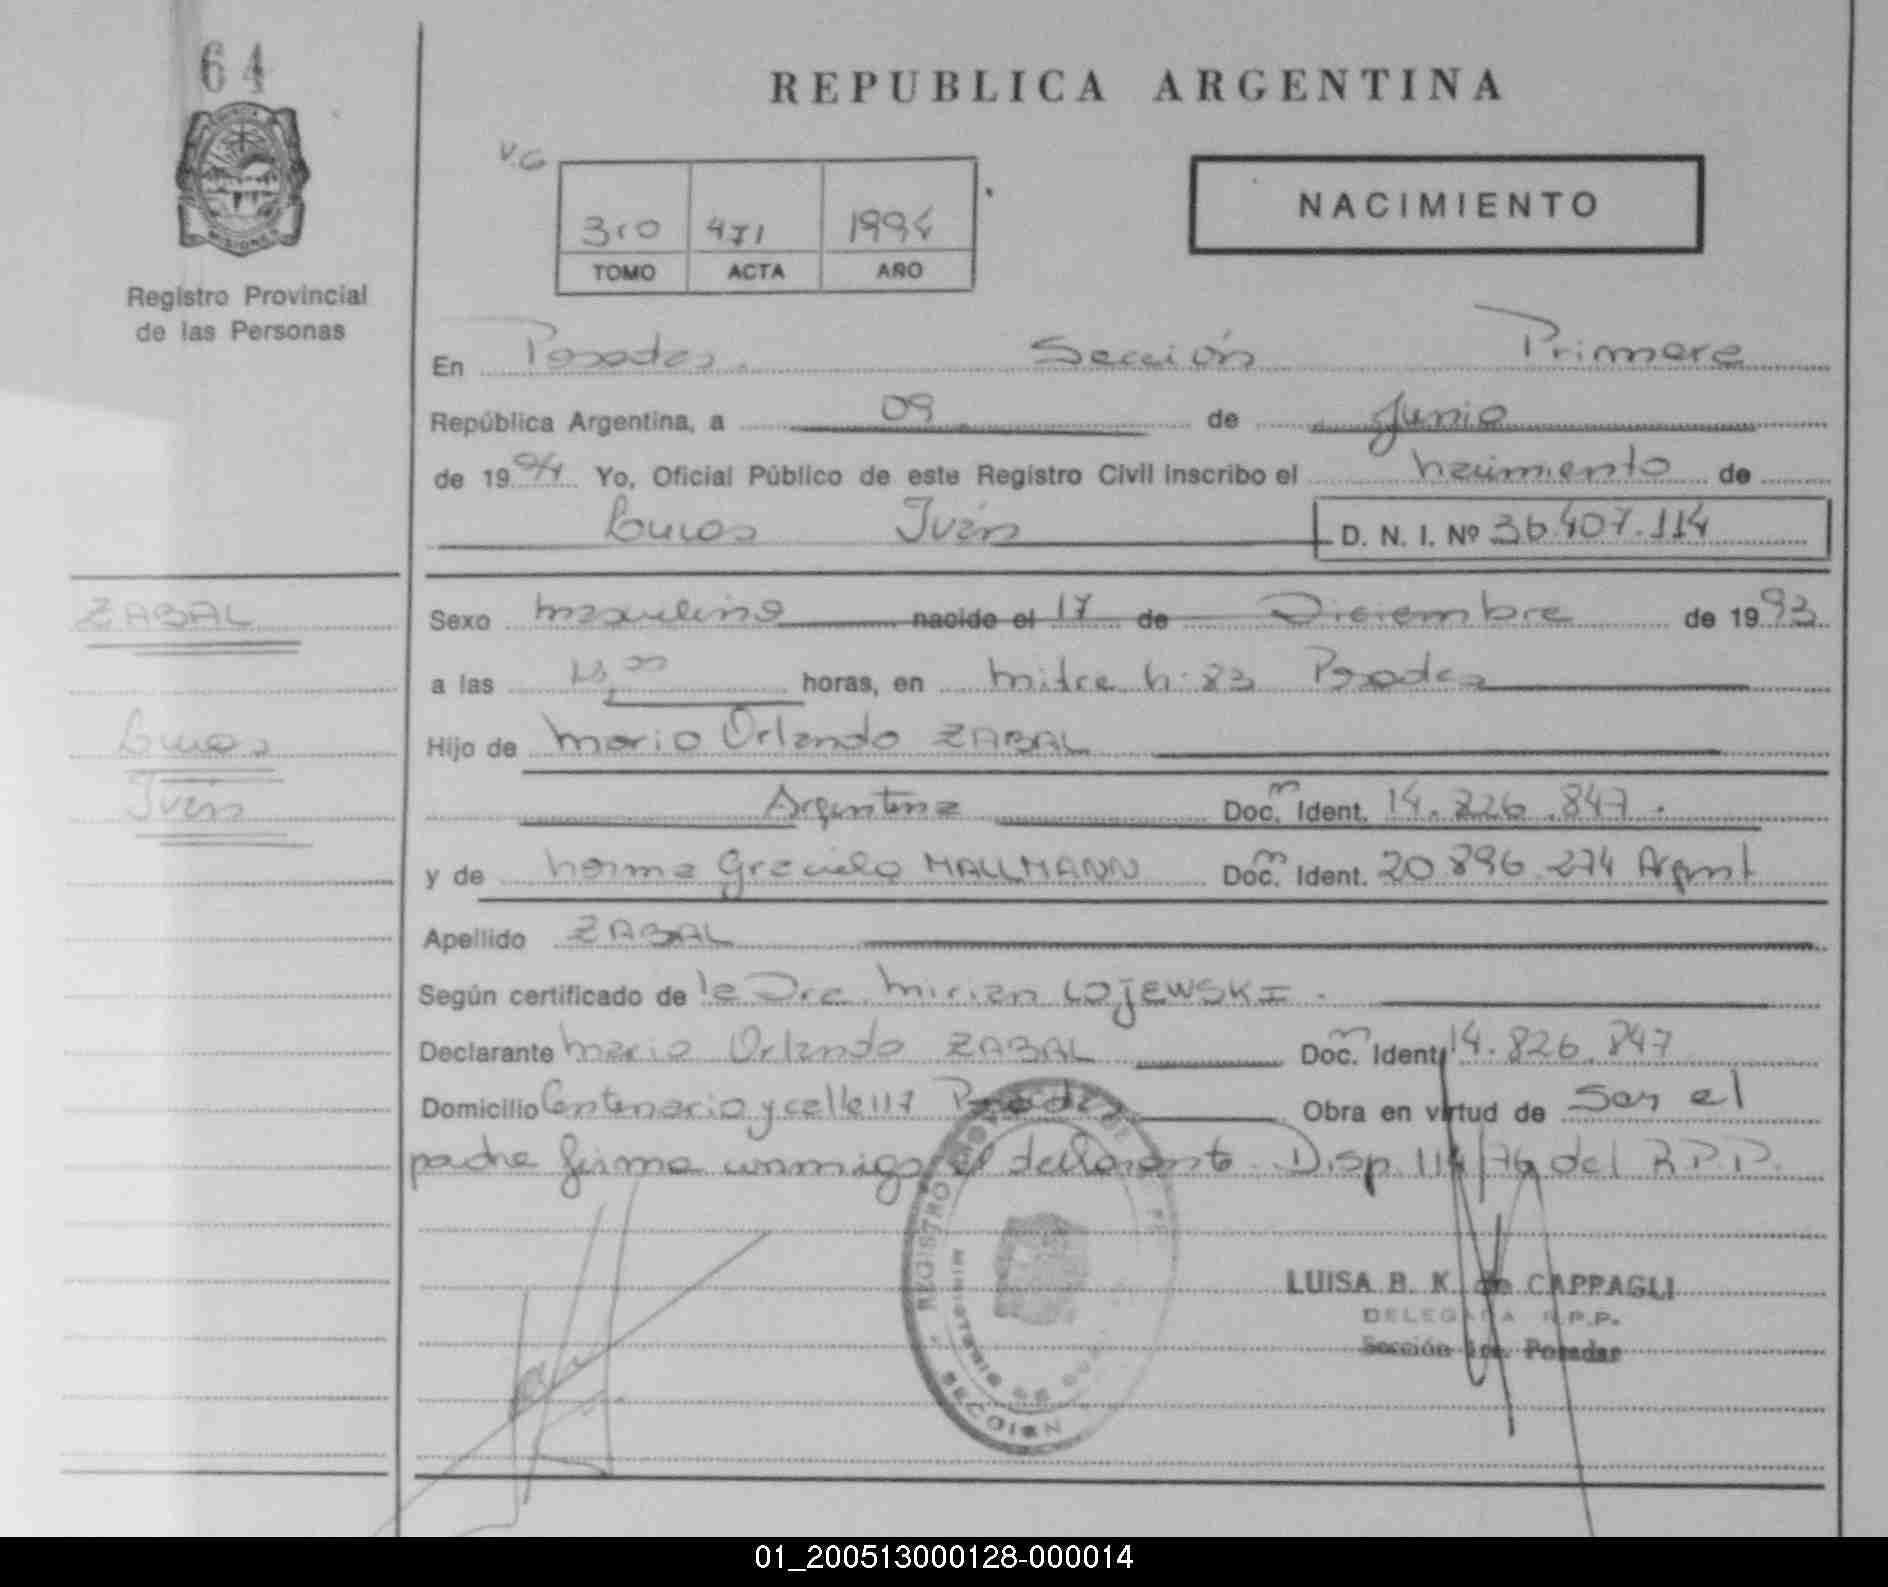 64
REPUBLICA ARGENTINA
V.G
NACIMIENTO
3ro 471 1994
TOMO ACTA AÑO
MISIONES
Registro Provincial
de las Personas
En Posadas. Sección Primera
República Argentina, a 09 de Junio
de 1994 Yo, Oficial Público de este Registro Civil inscribo el nacimiento de
Lucas Iván D. N. I. Nº 36.407.114
ZABAL
Sexo masculino nacido el 17 de Diciembre de 1993
a las horas, en Mitre N: 83 Posadas
Lucas
Hijo de Mario Orlando ZABAL
Iván
Argentina Doc. Ident. 14.826.847.
y de Norma Graciela MALLMANN Doc. Ident. 20.896.274 Argent
Apellido ZABAL
Según certificado de la Dra. Mirian LOJEWSKI.
Declarante Mario Orlando ZABAL Doc. Ident. 14.826.847
Domicilio Centenario y calle 117 Posadas Obra en virtud de Ser el
padre firma conmigo el declarante. Disp. 114/76 del R.P.P.
REGISTRO PROVINCIAL DE
MINISTERIO DE GOB
SECCION
LUISA B. K. de CAPPAGLI
DELEGADA R.P.P.
Sección 1ra. Posadas
01_200513000128-000014